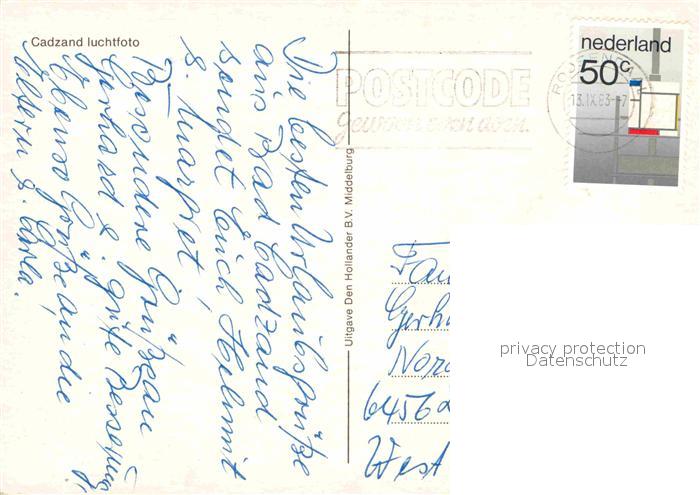 Cadzand luchtfoto
Die besten Urlaubsgrüße
aus Bad Cadzand
sendet Euch Helmut
u. Margret,
Besondere Grüße an
Gerhard u. gute Besserung
Ebenso Grüße an die
Eltern u.
Uitgave Den Hollander B.V. Middelburg
POSTCODE
gewoon even doen.
13.IX.83-7
nederland
50c
Fam
Gerh
Nord
6456
West
privacy protection
Datenschutz